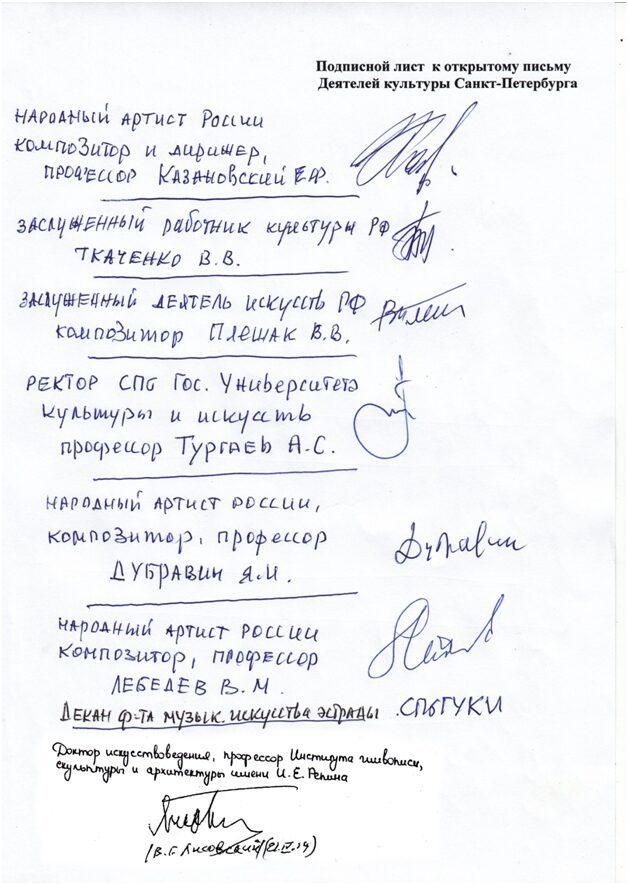 Подписной лист к открытому письму
Деятелей культуры Санкт-Петербурга
НАРОДНЫЙ АРТИСТ РОССИИ
КОМПОЗИТОР и дирижер,
ПРОФЕССОР КАЗАНОВСКИЙ Е.Ф.
ЗАСЛУЖЕННЫЙ работник культуры РФ
ТКАЧЕНКО В.В.
ЗАСЛУЖЕННЫЙ ДЕЯТЕЛЬ ИСКУССТВ РФ
композитор ПЛЕШАК В.В.
РЕКТОР СПб Гос. Университета
культуры и искусств
профессор ТУРГАЕВ А.С.
НАРОДНЫЙ АРТИСТ РОССИИ,
композитор, профессор
ДУБРАВИН Я.И.
Дубравин
НАРОДНЫЙ АРТИСТ РОССИИ
КОМПОЗИТОР, ПРОФЕССОР
ЛЕБЕДЕВ В.М.
ДЕКАН ф-та музык. искусства эстрады СПбГУКИ
Доктор искусствоведения, профессор Института живописи,
скульптуры и архитектуры имени И.Е. Репина
/В.Г. Лисовский/